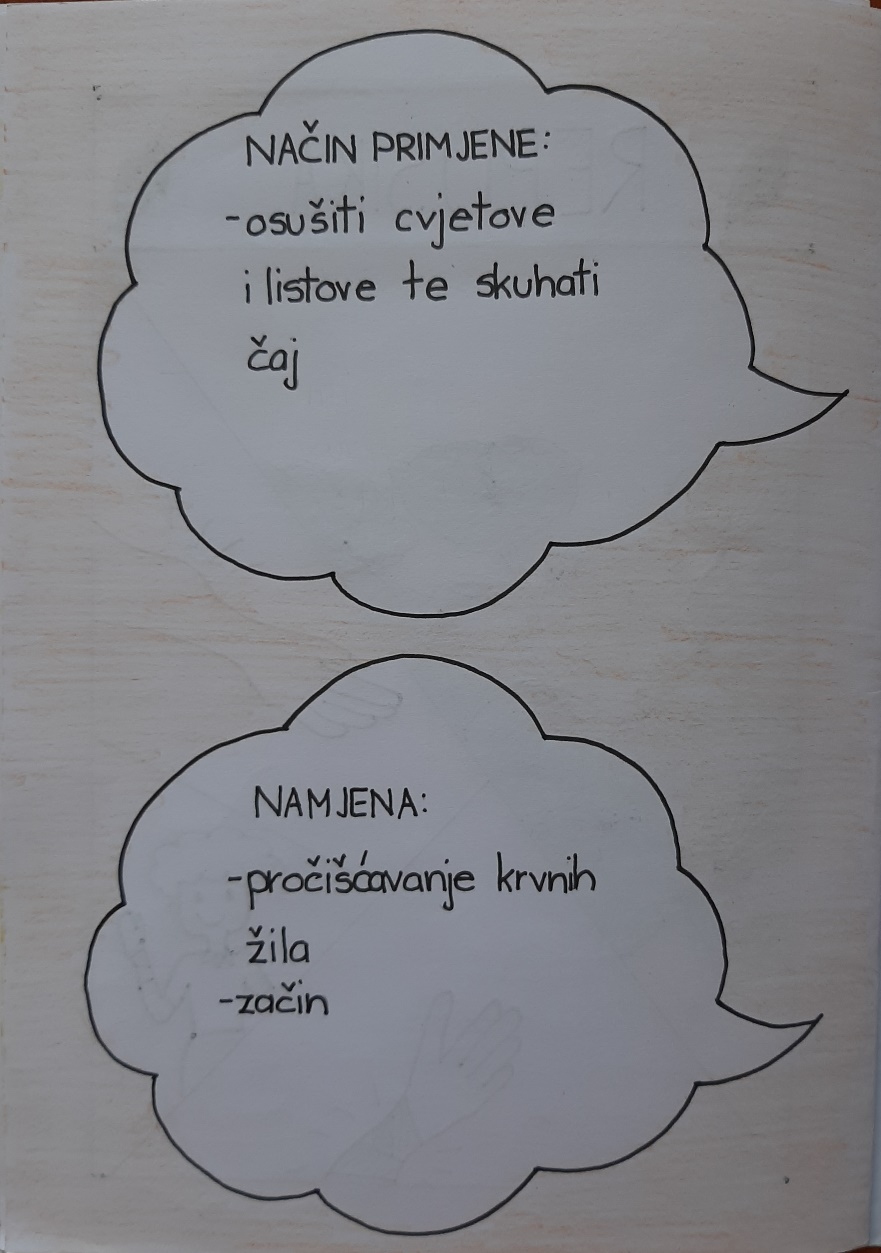 NAČIN PRIMJENE:
-osušiti cvjetove
i listove te skuhati
čaj
NAMJENA:
-pročišćavanje krvnih
žila
-začin